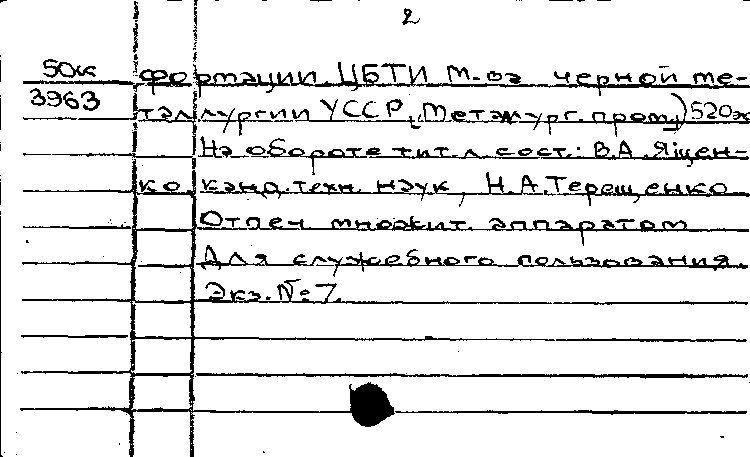 2
50к формации. ЦБТИ М-ва черной ме-
3963 таллургии УССР, Металлург. пром.) 520э
На обороте тит. л. сост.: В.А. Яцен-
ко, канд. техн. наук, Н.А. Терещенко
Отпеч множит. аппаратом
Для служебного пользования.
Экз. № 7.